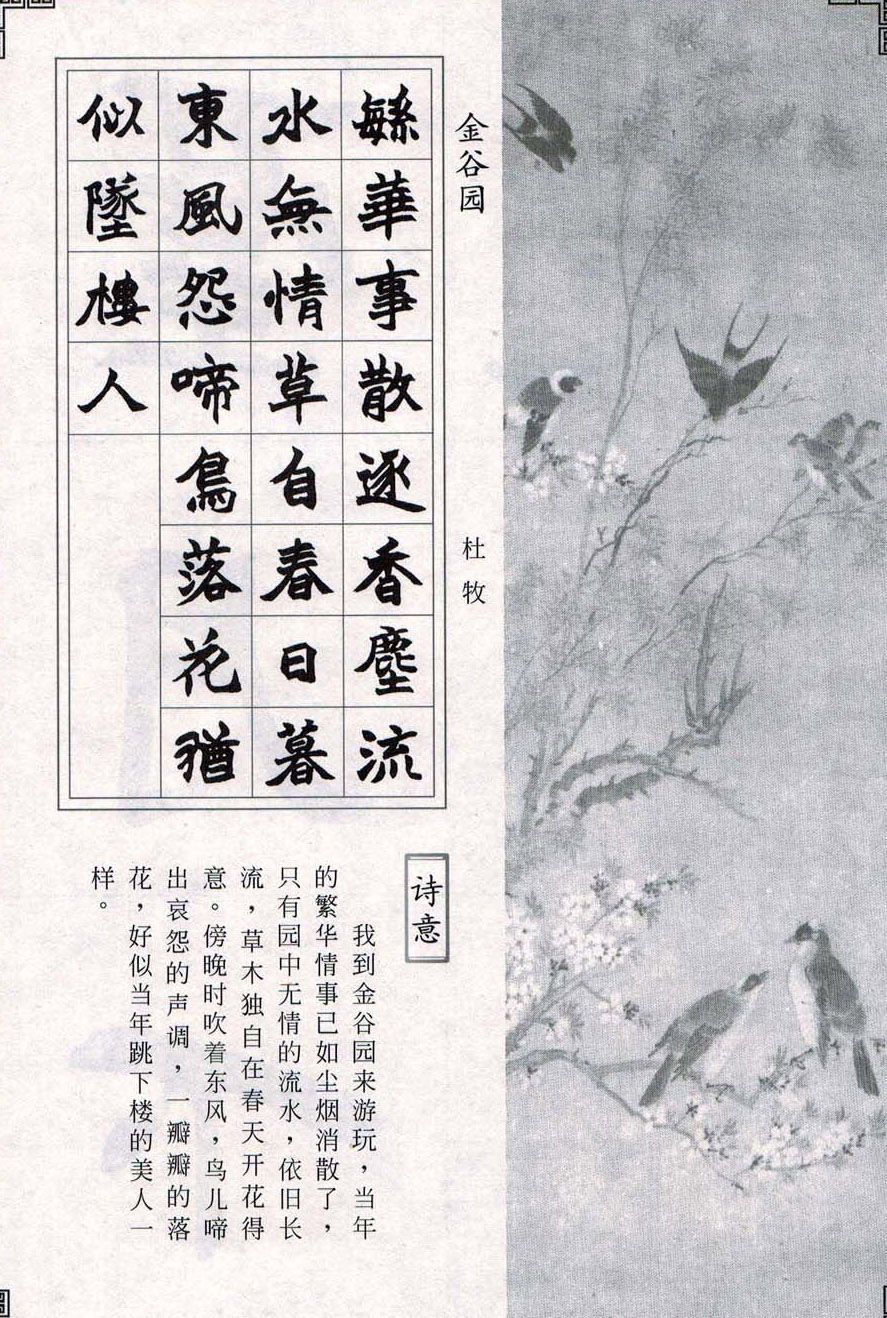 金谷园
杜牧
繁華事散逐香塵流
水無情草自春日暮
東風怨啼鳥落花猶
似墜樓人
诗意
我到金谷园来游玩，当年
的繁华情事已如尘烟消散了，
只有园中无情的流水，依旧长
流，草木独自在春天开花得
意。傍晚时吹着东风，鸟儿啼
出哀怨的声调，一瓣瓣的落
花，好似当年跳下楼的美人一
样。